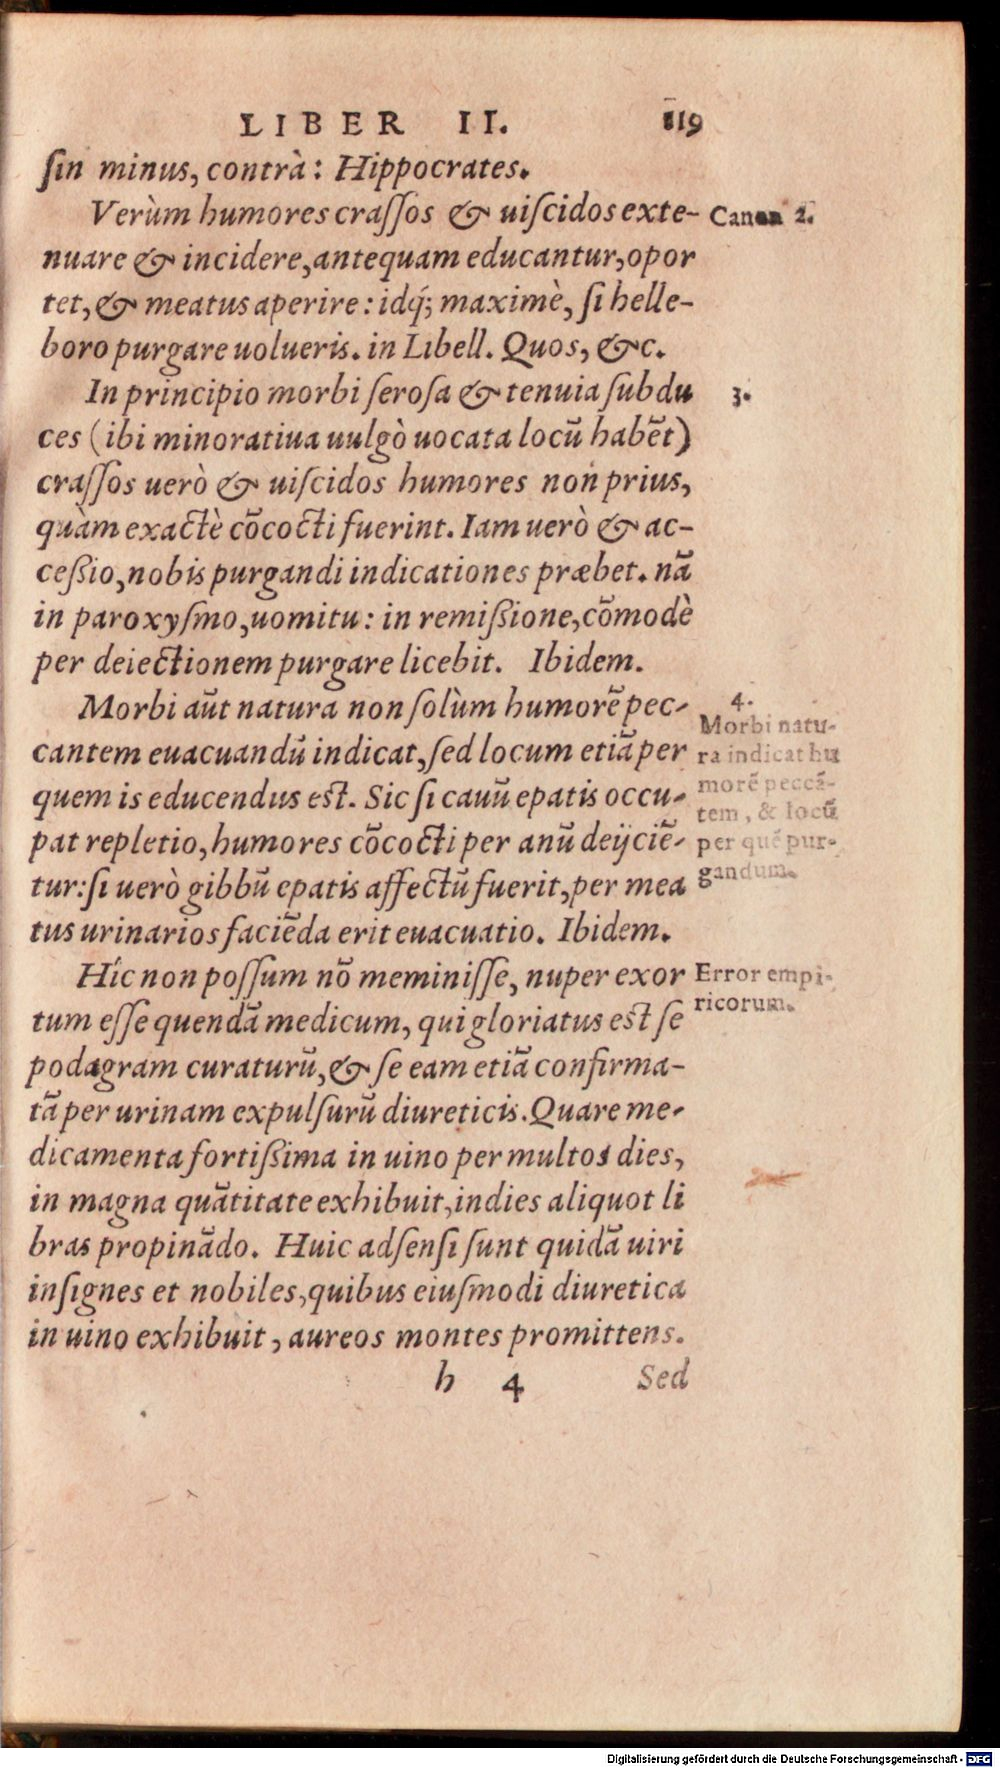 LIBER II. 119
ſin minus, contrà: Hippocrates.
Verùm humores craſſos & uiſcidos exte-
Canon 2.
nuare & incidere, antequam educantur, opor
tet, & meatus aperire: idq́; maximè, ſi helle-
boro purgare uolueris. in Libell. Quos, &c.
In principio morbi ſeroſa & tenuia ſubdu
3.
ces (ibi minoratiua uulgò uocata locū habēt)
craſſos uerò & uiſcidos humores non prius,
quàm exactè cōcocti fuerint. Iam uerò & ac-
ceßio, nobis purgandi indicationes præbet. nā
in paroxyſmo, uomitu: in remißione, cōmodè
per deiectionem purgare licebit. Ibidem.
Morbi aūt natura non ſolùm humorē pec-
cantem euacuandū indicat, ſed locum etiā per
quem is educendus est. Sic ſi cauū epatis occu-
pat repletio, humores cōcocti per anū deijciē-
tur: ſi uerò gibbū epatis affectū fuerit, per mea
tus urinarios faciēda erit euacuatio. Ibidem.
4.
Morbi natu-
ra indicat hu
morē peccā-
tem, & locū
per quē pur-
gandum.
Hîc non poſſum nō meminiſſe, nuper exor
tum eſſe quendā medicum, qui gloriatus est ſe
podagram curaturū, & ſe eam etiā confirma-
tā per urinam expulſurū diureticis. Quare me-
dicamenta fortißima in uino per multos dies,
in magna quātitate exhibuit, indies aliquot li
bras propinādo. Huic adſenſi ſunt quidā uiri
inſignes et nobiles, quibus eiuſmodi diuretica
in uino exhibuit, aureos montes promittens.
Error empi-
ricorum.
h 4 Sed
Digitalisierung gefördert durch die Deutsche Forschungsgemeinschaft - DFG